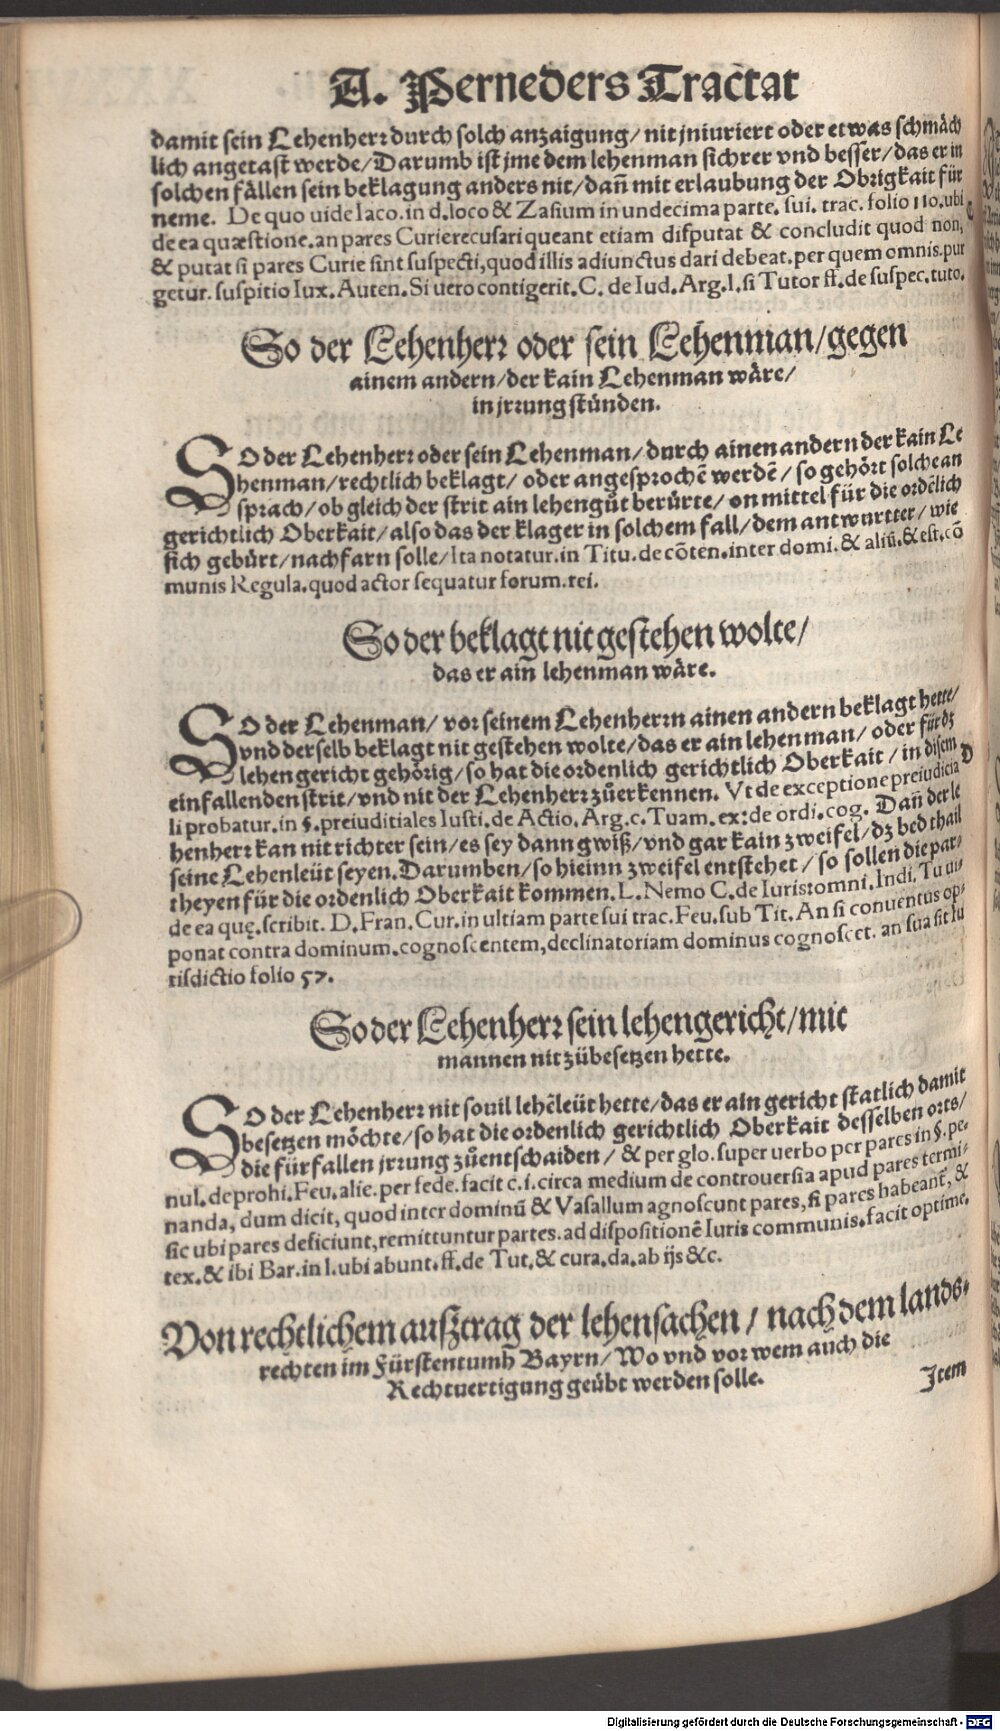 A. Perneders Tractat
damit sein Lehenherꝛ durch solch anzaigung/ nit jniuriert oder etwas schmäch
lich angetast werde/ Darumb ist jme dem lehenman sichrer vnd besser/ das er in
solchen fällen sein beklagung anders nit/ dañ mit erlaubung der Obrigkait für
neme. De quo uide Iaco. in d. loco & Zasium in undecima parte. sui. trac. folio 110. ubi
de ea quæstione. an pares Curie recusari queant etiam disputat & concludit quod non,
& putat si pares Curie sint suspecti, quod illis adiunctus dari debeat. per quem omnis. pur
getur. suspitio Iux. Auten. Si uero contigerit. C. de Iud. Arg. l. si Tutor ff. de suspec. tuto.
C
So der Lehenherꝛ oder sein Lehenman/ gegen
ainem andern/ der kain Lehenman wäre/
in jrꝛung stünden.
SO der Lehenherꝛ oder sein Lehenman/ durch ainen andern der kain Le
henman/ rechtlich beklagt/ oder angesprochẽ werdẽ/ so gehört solche an
sprach/ ob gleich der strit ain lehengůt berürte/ on mittel für die ordẽlich
gerichtlich Oberkait/ also das der klager in solchem fall/ dem antwurtter/ wie
sich gebürt/ nachfarn solle/ Ita notatur. in Titu. de cõten. inter domi. & aliũ. & est. cõ
munis Regula. quod actor sequatur forum. rei.
So der beklagt nit gestehen wolte/
das er ain lehenman wäre.
SO der Lehenman/ vor seinem Lehenherrn ainen andern beklagt hette/
vnd der selb beklagt nit gestehen wolte/ das er ain lehenman/ oder für dz
lehengericht gehörig/ so hat die ordenlich gerichtlich Oberkait/ in disem
D
einfallenden strit/ vnd nit der Lehenherꝛ zů erkennen. Vt de exceptione preiudicia
li probatur. in §. preiuditiales Iusti. de Actio. Arg. c. Tuam. ex: de ordi. cog. Dañ der le
henherꝛ kan nit richter sein/ es sey dann gwiß/ vnd gar kain zweifel/ dz bed thail
seine Lehenleüt seyen. Darumben/ so hierinn zweifel entstehet/ so sollen die par-
theyen für die ordenlich Oberkait kommen. L. Nemo C. de Iuris: omni. Indi. Tu ui-
de ea quę. scribit. D. Fran. Cur. in ultiam parte sui trac. Feu. sub Tit. An si conuentus op-
ponat contra dominum. cognoscentem, declinatoriam dominus cognoscet. an sua sit Iu
risdictio folio 57.
So der Lehenherꝛ sein lehengericht/ mit
mannen nit zübesetzen hette.
SO der Lehenherꝛ nit souil lehẽleüt hette/ das er ain gericht statlich damit
besetzen möchte/ so hat die ordenlich gerichtlich Oberkait desselben orts/
die fürfallen jrꝛung zů entschaiden/ & per glo. super uerbo per pares in §. pe-
nul. de prohi. Feu. alie. per fede. facit c. i. circa medium de controuersia apud pares termi-
nanda, dum dicit, quod inter dominũ & Vasallum agnoscunt pares, si pares habeant, &
sic ubi pares deficiunt, remittuntur partes. ad dispositionẽ Iuris communis. facit optime.
tex. & ibi Bar. in l. ubi abunt. ff. de Tut. & cura. da. ab ijs &c.
Von rechtlichem außtrag der lehensachen/ nach dem lands-
rechten im Fürstentumb Bayrn/ Wo vnd vor wem auch die
Rechtuertigung geübt werden solle.
Item
Digitalisierung gefördert durch die Deutsche Forschungsgemeinschaft - DFG